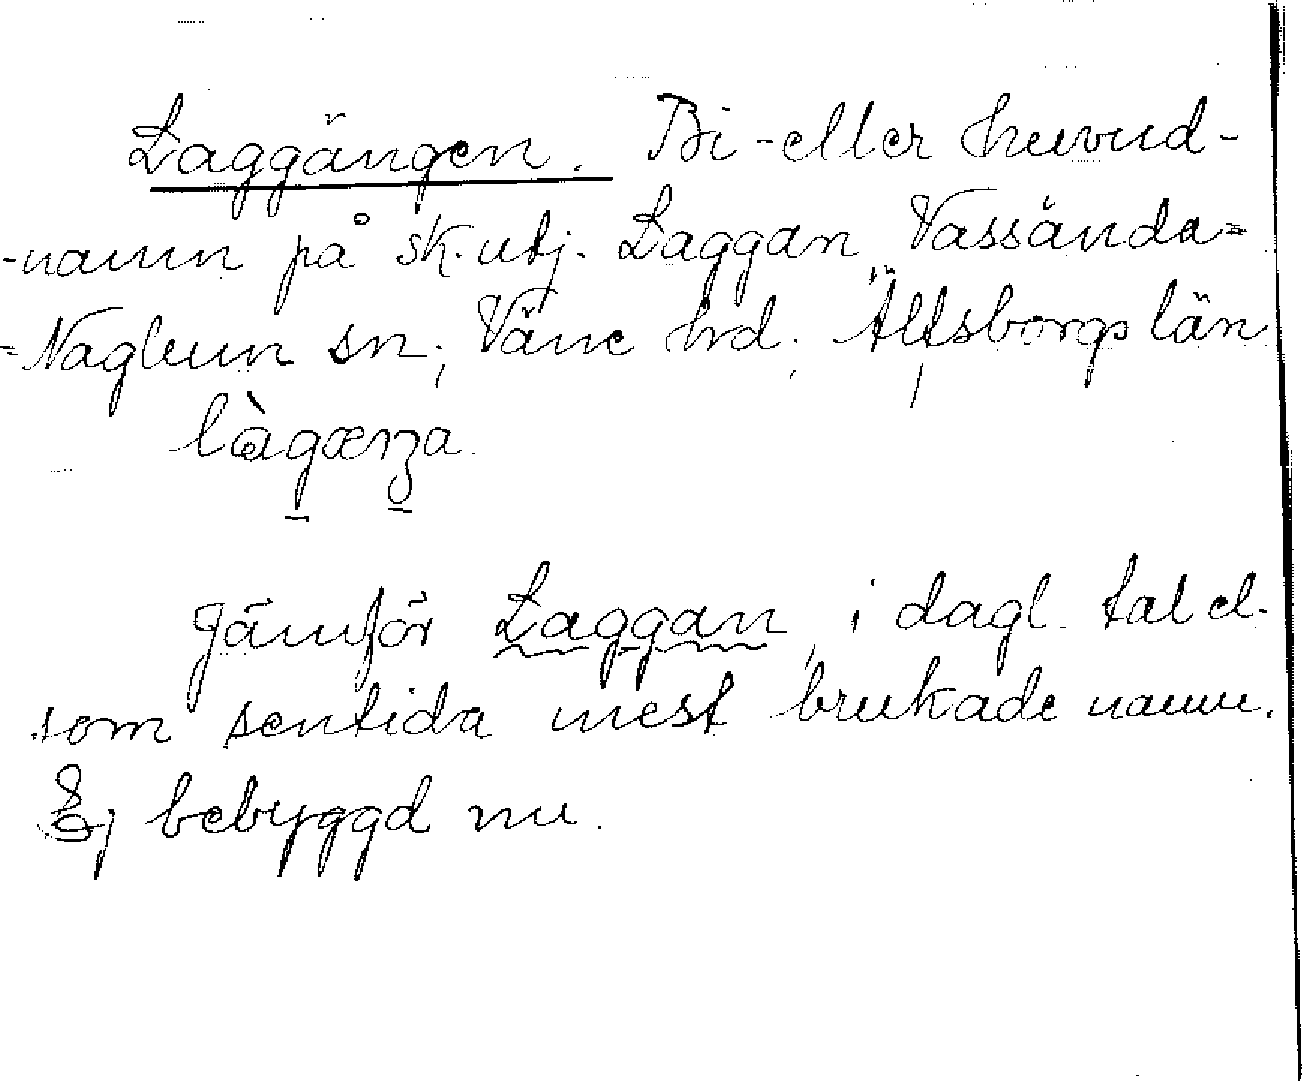 Laggängen. Bi- eller huvud-
-namn på sk. utj. Laggan, Vassända=
=Naglum sn, Väne hrd, Älfsborgs län
làgæŋa
Jämför Laggan, i dagl. tal el.
som sentida mest brukade namn.
Ej bebyggd nu.